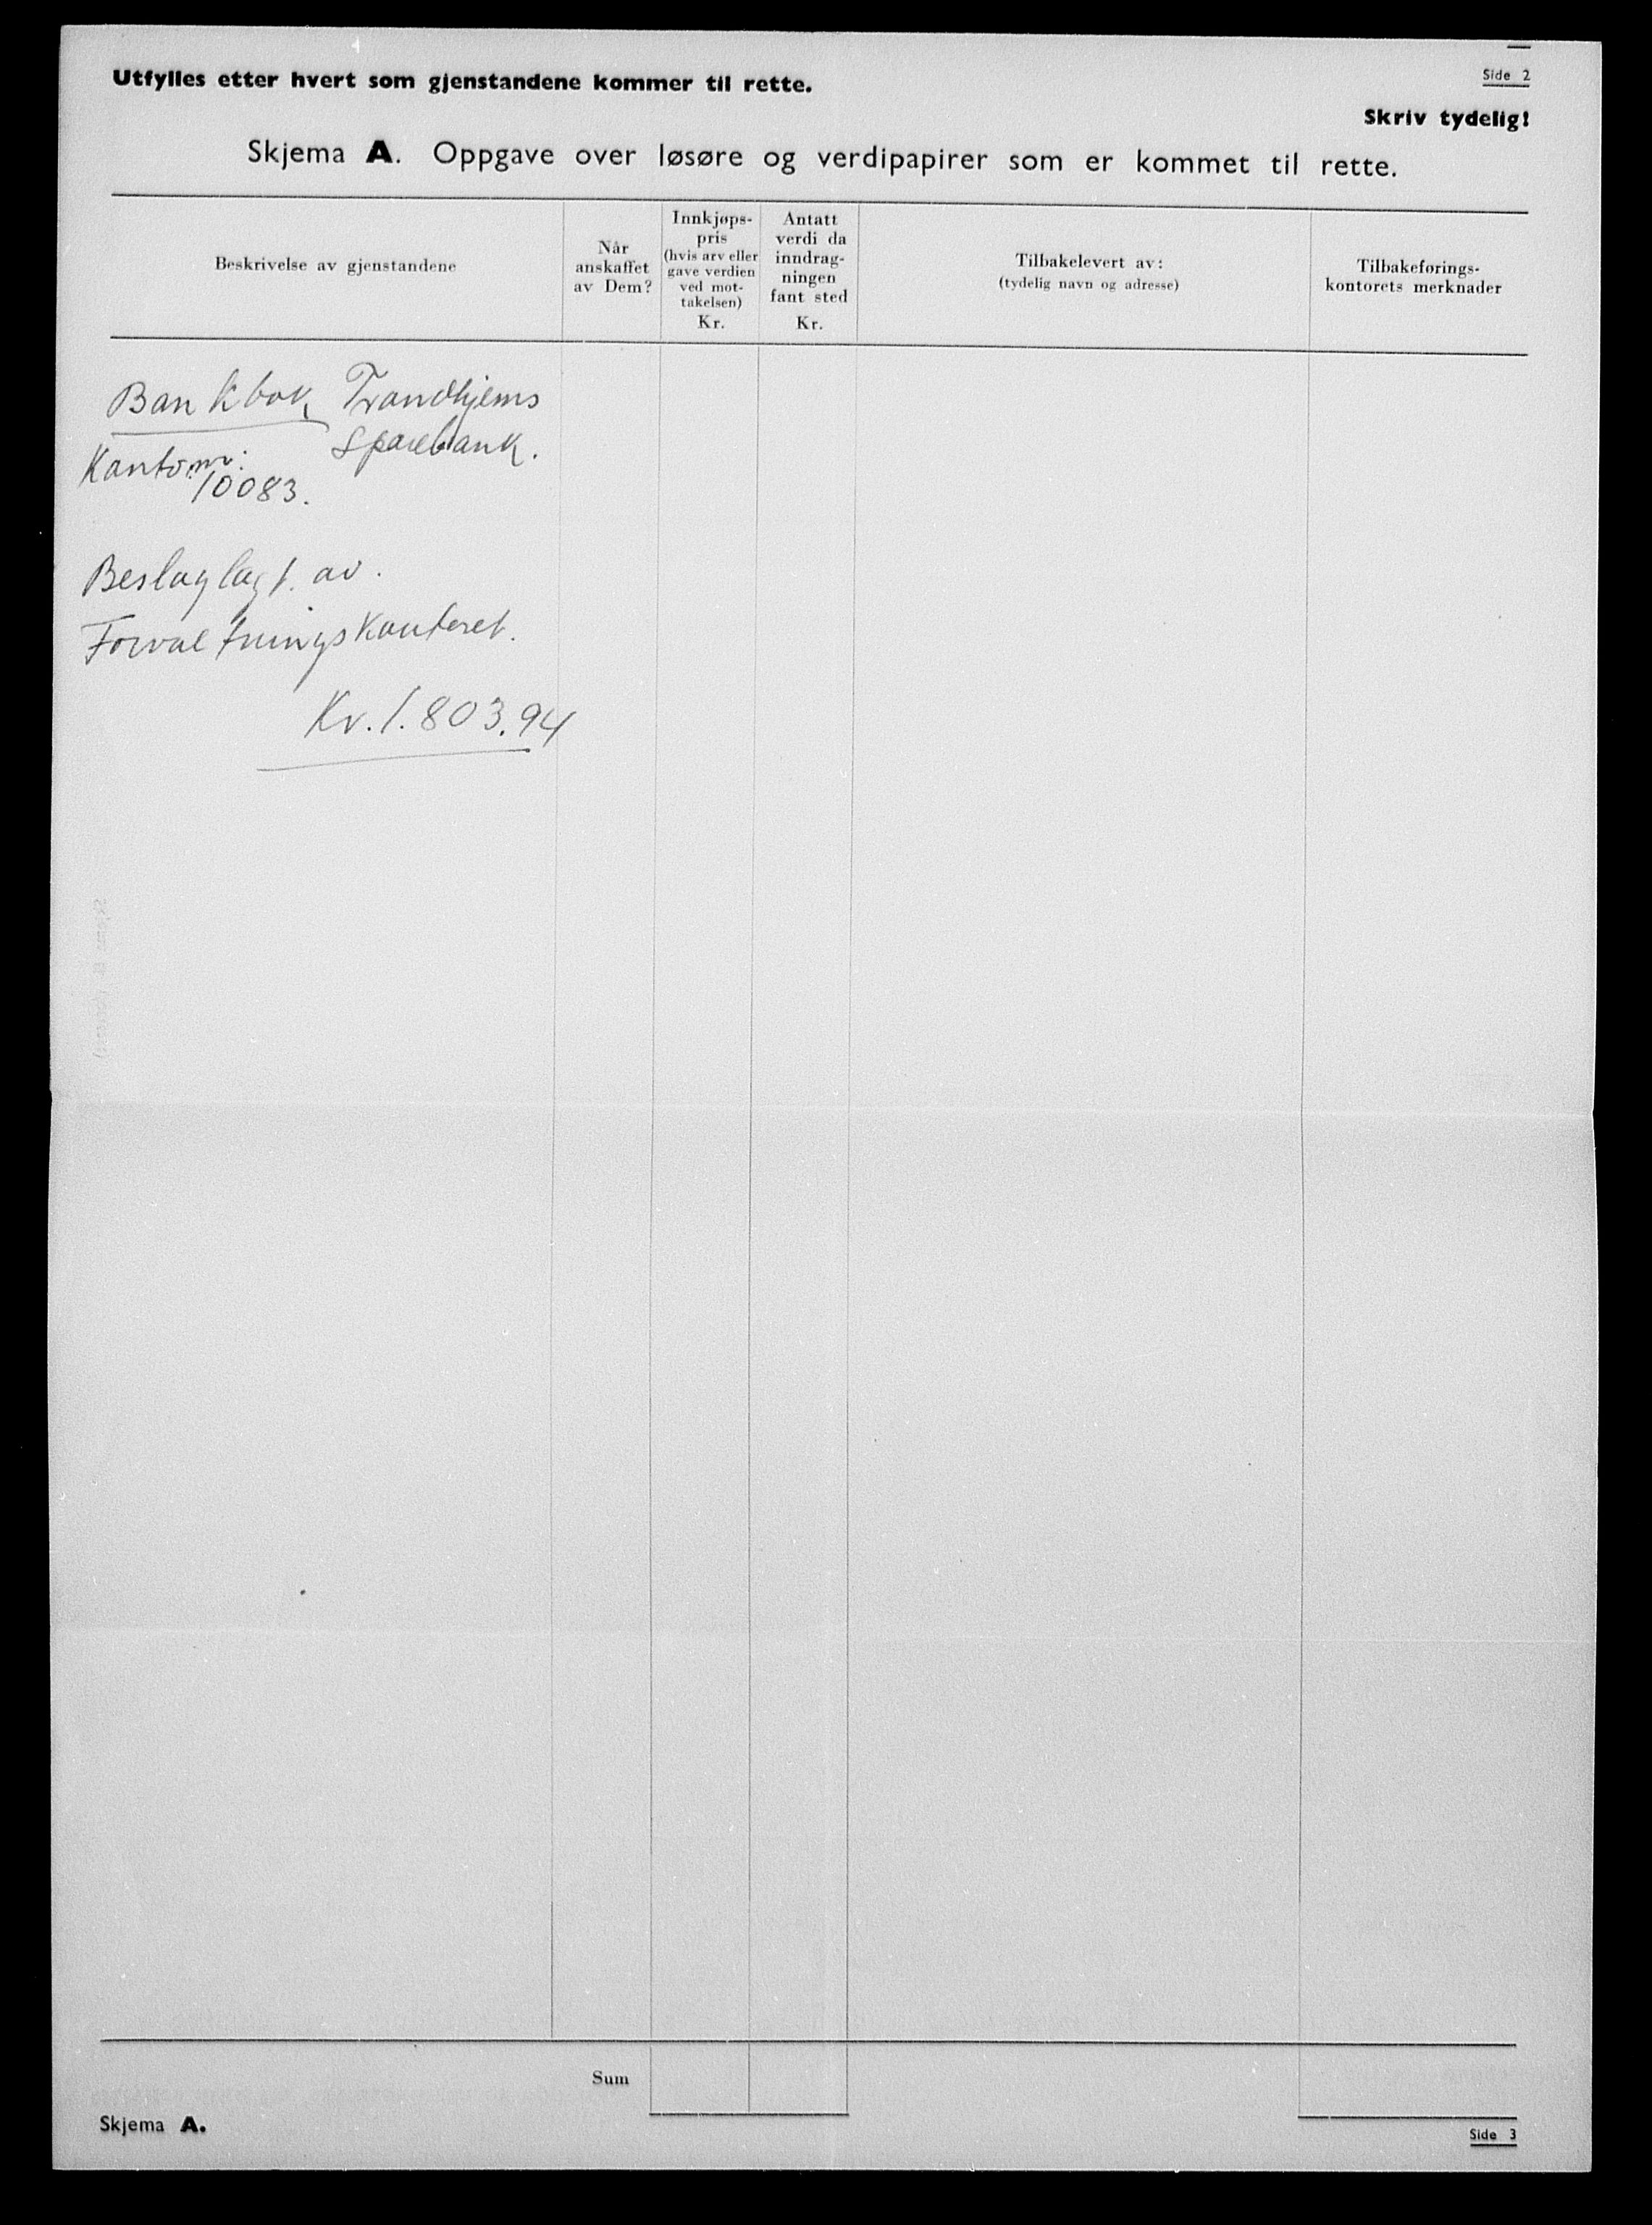 Utfylles etter hvert som gjenstandene kommer til rette.
Side 2
Skriv tydelig!
Skjema A. Oppgave over løsøre og verdipapirer som er kommet til rette.
Beskrivelse av gjenstandene
Når
anskaffet
av Dem?
Innkjøps-
pris
(hvis arv eller
gave verdien
ved mot-
takelsen)
Kr.
Antatt
verdi da
inndrag-
ningen
fant sted
Kr.
Tilbakelevert av:
(tydelig navn og adresse)
Tilbakeførings-
kontorets merknader
Bankbok, Trondhjems
Sparebank.
Kontonr:
10083.
Beslaglagt. av.
Forvaltningskontoret.
Kr. 1.803.94
Sum
Skjema A.
Side 3